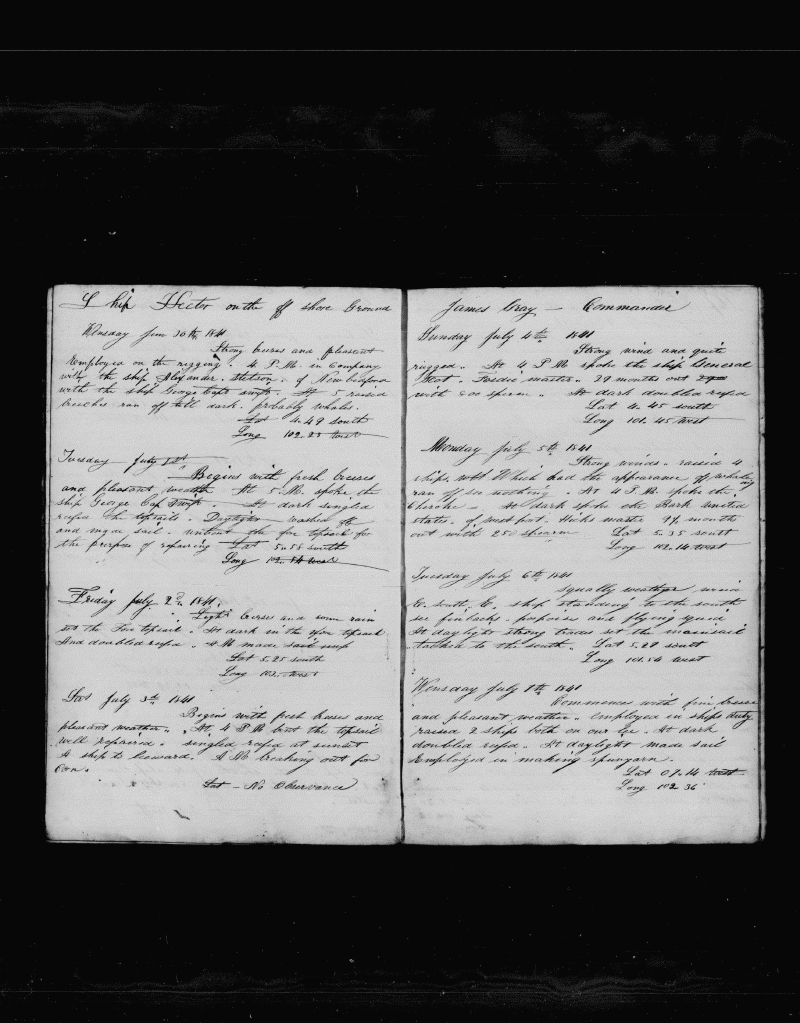 Ship Hector on the off shore Ground
Wensday June 30th 1841
Strong breeses and pleasant
Employed on the rigging. 4 P.M. in Company
with the ship Alexander, Stetson, of New bedford
with the ship George Capt At 5 raised
breches ran off till dark. probably whales.
Lat 4.49 south
Long 102.23 west
Tuesday July 1st
Begins with fresh breeses
and pleasant weather At 5 P.M. spoke the
ship George Cap At dark singled
reefed the topsails. Daylight washed
and made sail. unbent the fore topsail for
the purpose of repairing Lat 5.58 south
Long west
Friday July 2d 1841.
Light breeses and some rain
the Fore topsail. At dark in the topsail
And doubled reefed. A M made sail
Lat 5.25 south
Long 102. west
Sat July 3th 1841
Begins with fresh breeses and
pleasant weather. At 4 P M bent the topsail
well repaired. singled reefed at sunset
A ship to leward. A M breaking out for
Corn.
Lat - No Observance
James Gray - Commander
Sunday July 4th 1841
Strong wind and quite
rugged. At 4 P M spoke the ship General
master. 29 months out
with 800 sperm. At dark doubled reefed
Lat 4.45 south
Long 101.45 west
Monday July 5th 1841
Strong winds. raised 4
ships Which had the appearance of whaling
ran off see nothing. At 4 P.M. spoke the
Cherokee - At dark spoke the Bark united
states. of westport. Hicks master 9½ months
out with 250 sperm Lat 5.35 south
Long 102.14 west
Tuesday July 6th 1841
Squally weather wind
E. south, E. ship standing to the south
see finbacks. porposes and flying squid
At daylight strong trades set the mainsail
tacked to the south. Lat 5.27 south
Long 101.54 west
Wensday July 7th 1841
Commences with fine breeses
and pleasant weather. employed in ships duty
raised 2 ships both on our lee. At dark
doubled reefed. At daylight made sail
Employed in making spunyarn.
Lat 07.14 west
Long 102 36